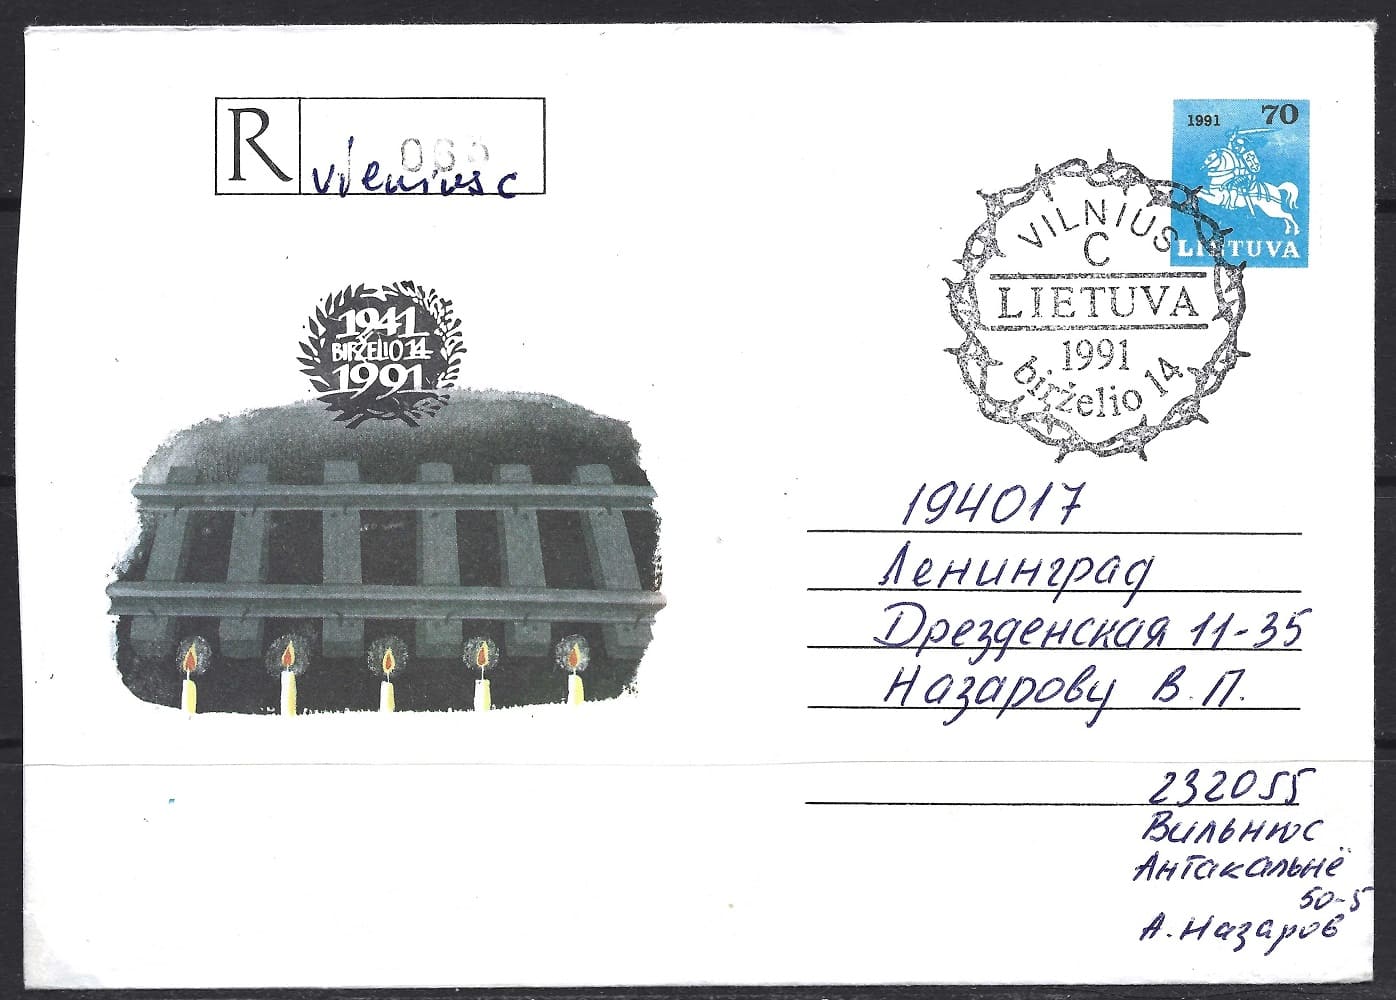 R
Vilnius C
1991 70
LIETUVA
VILNIUS
C
LIETUVA
1991
birželio 14
1941
BIRŽELIO 14
1991
194017
Ленинград
Дрезденская 11-35
Назарову В.П.
232055
Вильнюс
Антакальнё
50-5
А.Назаров